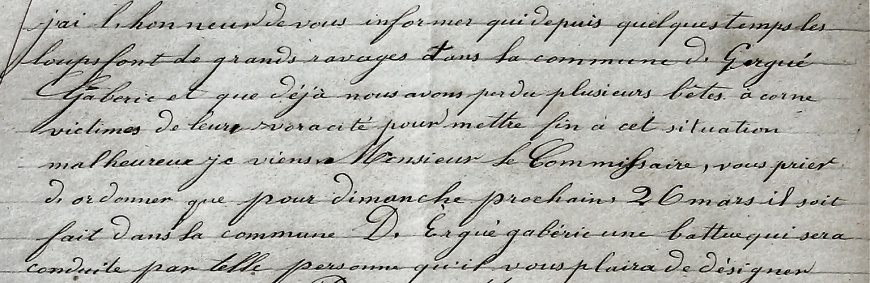 j'ai l'honneur de vous informer qui depuis quelques temps les
loups font de grands ravages dans la commune d. Gergué
Gabéric et que déjà nous avons perdu plusieurs bêtes à corne
victimes de leur voracité pour mettre fin à cet situation
malheureux je viens Monsieur le Commissaire, vous prier
d. ordonner que pour dimanche prochain 26 mars il soit
fait dans la commune D. Ergué gabéric une battue qui sera
conduite par telle personne qu'il vous plaira de désigner